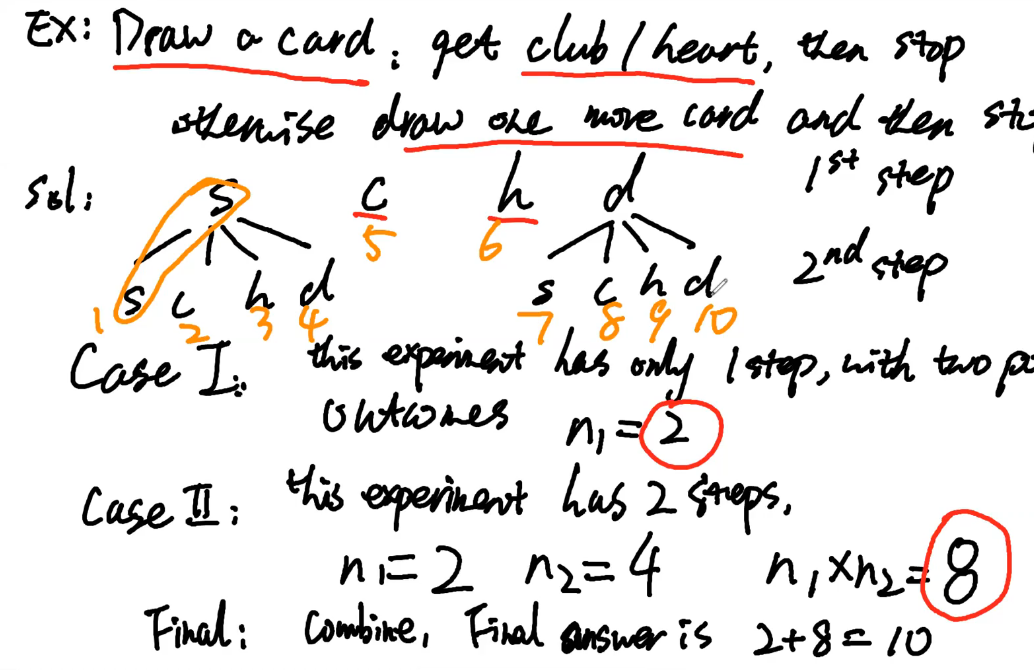 Ex: Draw a card: get club / heart, then stop
otherwise draw one more card and then sto
Sol: s c h d 1st step
5 6
s c h d s c h d 2nd step
1 2 3 4 7 8 9 10
Case I: this experiment has only 1 step, with two po
outcomes n₁ = 2
Case II: this experiment has 2 steps.
n₁ = 2 n₂ = 4 n₁ × n₂ = 8
Final: Combine, Final answer is 2+8 = 10